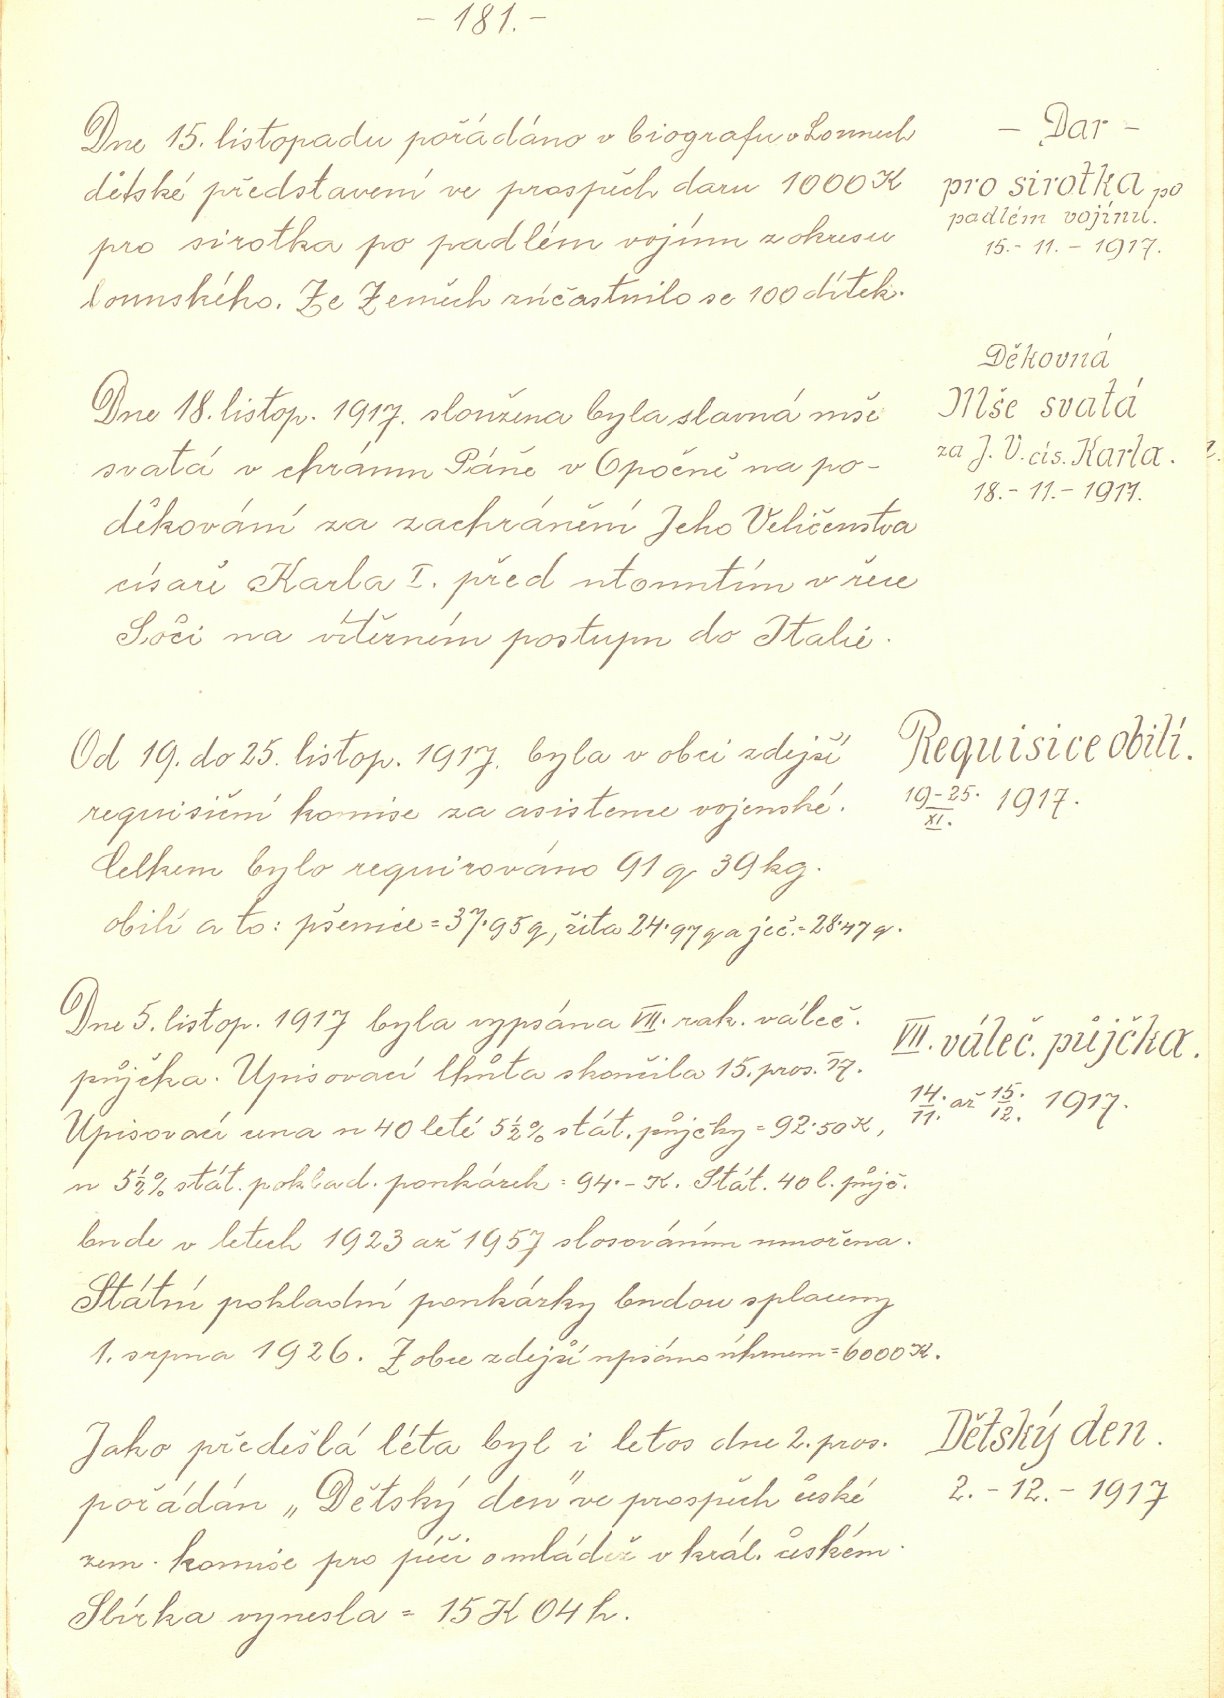 - 181. -
Dne 15. listopadu pořádáno v biografu v Lounech
dětské představení ve prospěch daru 1000 K
pro sirotka po padlém vojínu z okresu
lounského. Ze Zeměch zúčastnilo se 100 dítek.
- Dar -
pro sirotka po
padlém vojínu.
15. - 11. - 1917.
Dne 18. listop. 1917. sloužena byla slavná mše
svatá v chrámu Páně v Opočně na po-
děkování za zachránění Jeho Veličenstva
císaře Karla I. před utonutím v řece
Soči na vítězném postupu do Italie.
Děkovná
Mše svatá
za J. V. cís. Karla.
18. - 11. - 1917.
Od 19. do 25. listop. 1917. byla v obci zdejší
requisiční komise za asistence vojenské.
Celkem bylo requirováno 91 q 39 kg.
obilí a to: pšenice = 37·95 q, žita 24·97 q a ječ. = 28·47 q.
Requisice obilí.
19 - 25. 1917.
XI.
Dne 5. listop. 1917 byla vypsána VII. rak. váleč.
půjčka. Upisovací lhůta skončila 15. pros. 17.
Upisovací cena u 40 leté 5½% stát. půjčky = 92·50 K,
u 5½% stát. poklad. poukázek = 94·- K. Stát. 40 l. půjč.
bude v letech 1923 až 1957 slosováním umořena.
Státní pokladní poukázky budou splaceny
1. srpna 1926. Z obce zdejší upsáno úhrnem = 6000 K.
VII. váleč. půjčka.
14./11. až 15./12. 1917.
Jako předešlá léta byl i letos dne 2. pros.
pořádán „Dětský den" ve prospěch české
zem. komise pro péči o mládež v král. českém.
Sbírka vynesla = 15 K 04 h.
Dětský den.
2. - 12. - 1917